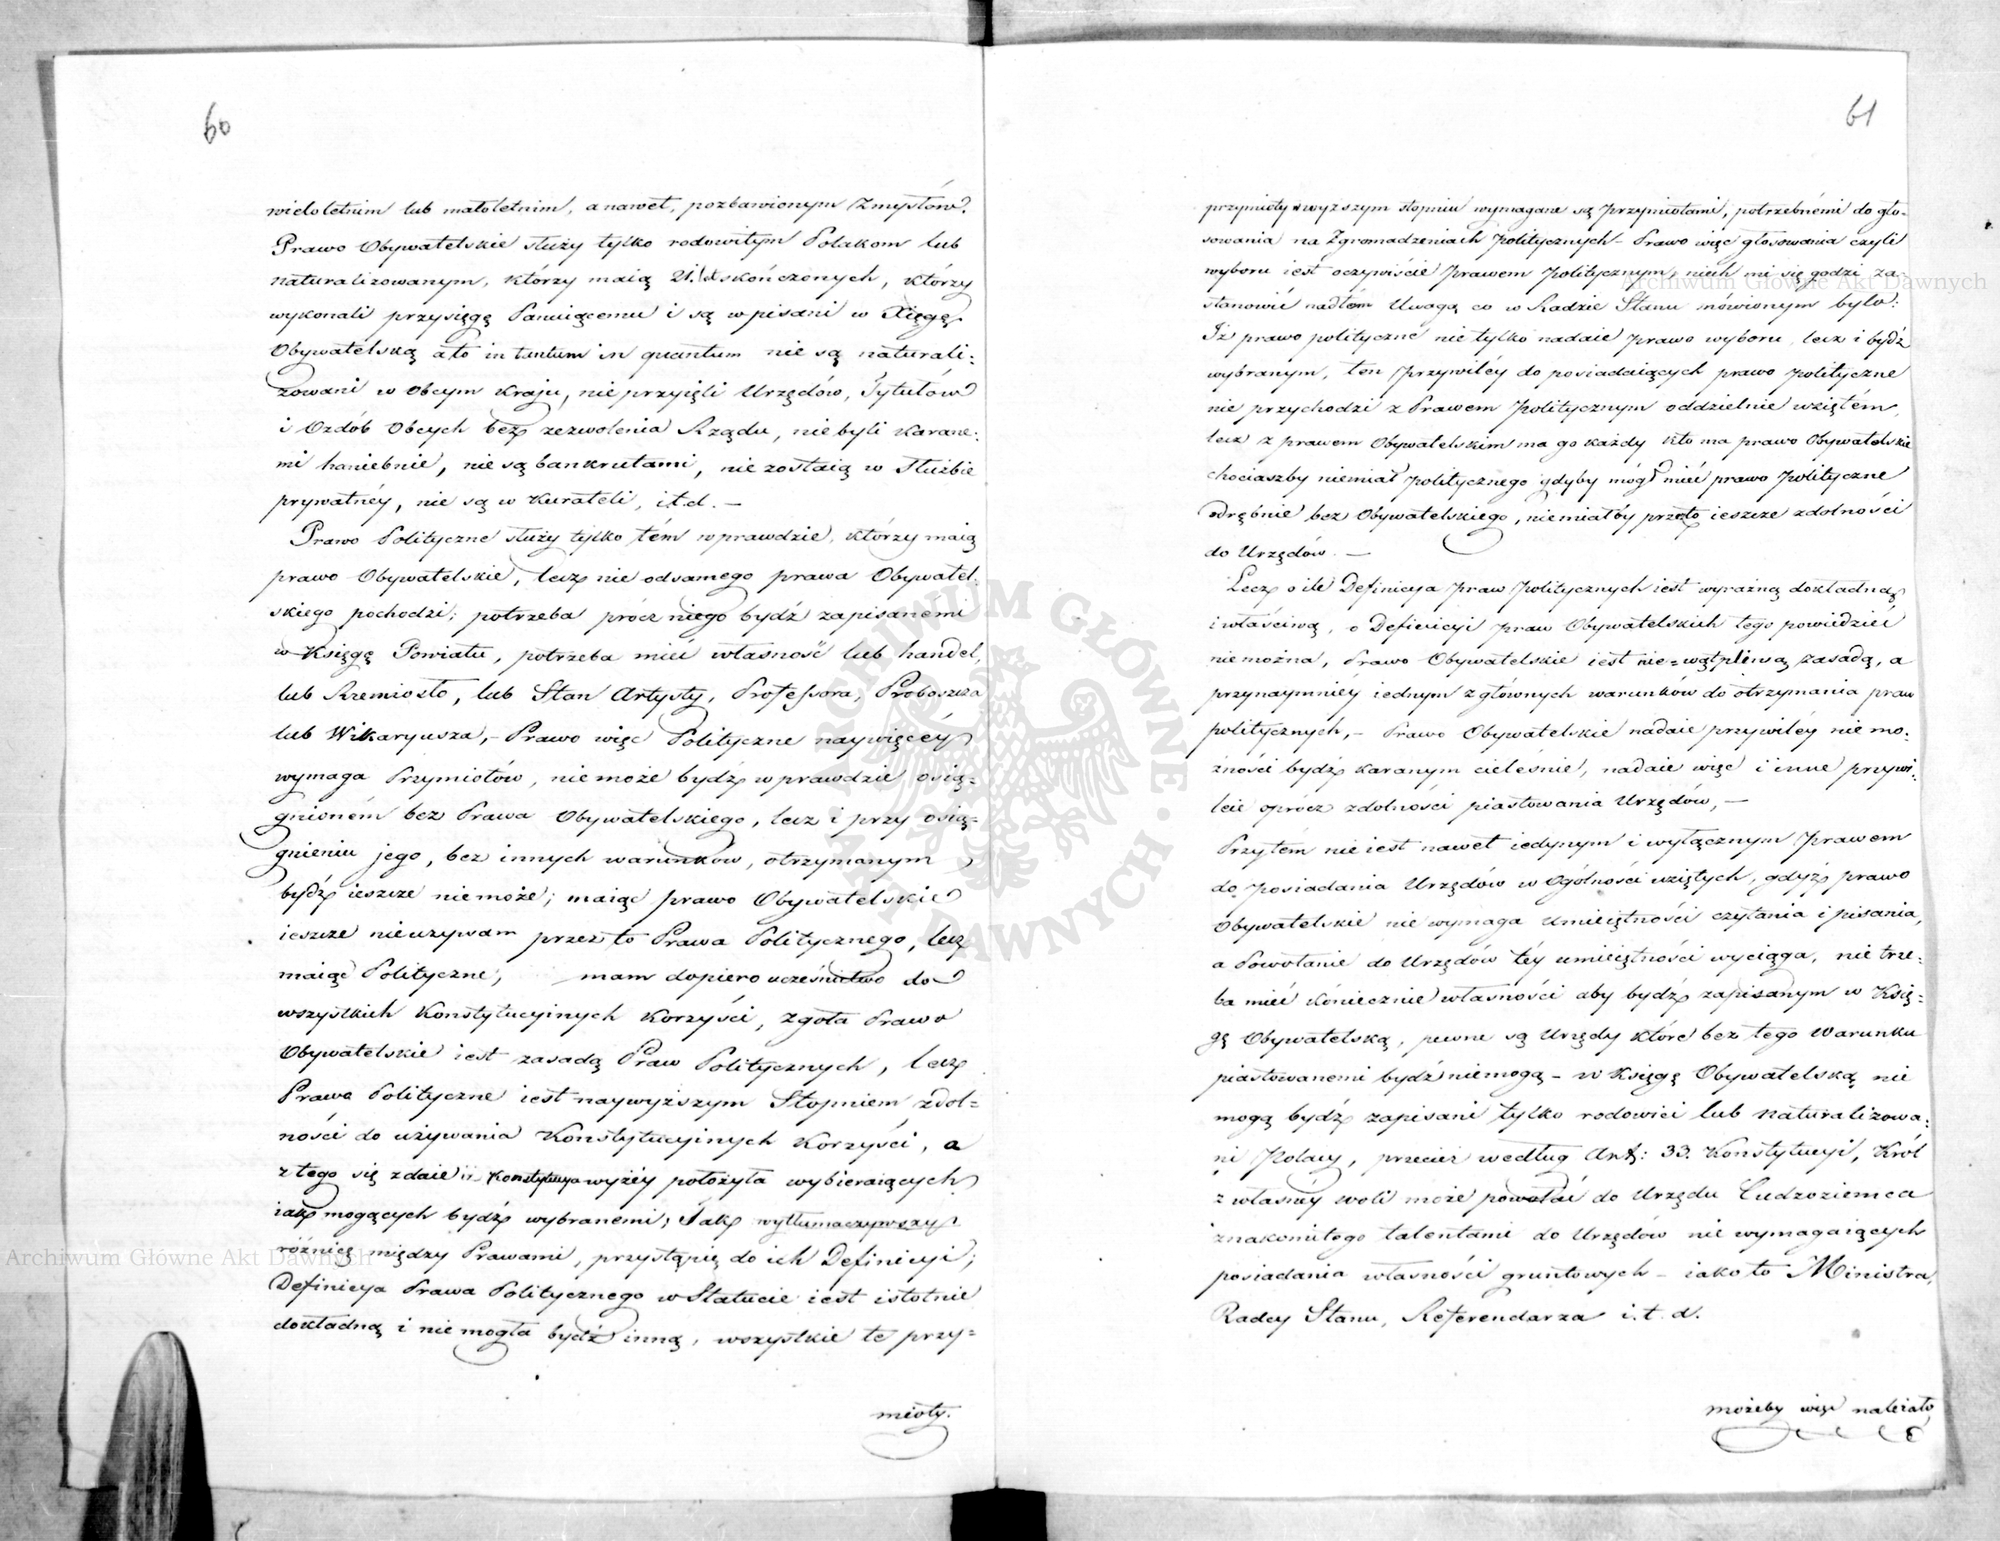 60
wieloletnim lub małoletnim, a nawet, pozbawionym Zmysłów.
Prawo Obywatelskie służy tylko rodowitym Polakom lub
naturalizowanym, którzy maią 21. lat skończonych, którzy
wykonali przysięgę Panuiącemu i są wpisani w Xięgę
Obywatelską a to in tantum in quantum nie są naturali:
zowani w Obcym Kraju, nie przyięli Urzędów, Tytułów
i Ozdób Obcych bez zezwolenia Rządu, nie byli Karane:
mi haniebnie, nie są bankrutami, nie zostaią w służbie
prywatnéy, nie są w Kurateli, i.t.d. —
Prawo Polityczne służy tylko tém wprawdzie, którzy maią
prawo Obywatelskie, lecz nie od samego prawa Obywatel:
skiego pochodzi; potrzeba prócz niego bydź zapisanemi
w Księgę Powiatu, potrzeba mieć własność lub handel,
lub Rzemiosło, lub Stan Artysty, Professora, Proboszcza
lub Wikaryusza, – Prawo więc Polityczne naywięcéy
wymaga Przymiotów, nie może bydź wprawdzie osią=
gnioném bez Prawa Obywatelskiego, lecz i przy osią=
gnieniu jego, bez innych warunków, otrzymanym
bydź ieszcze niemoże; maiąc prawo Obywatelskie
ieszcze nieużywam przez to Prawa Politycznego, lecz
maiąc Polityczne, mam dopiero uczestnictwo do
wszystkich Konstytucyinych Korzyści, zgoła Prawo
Obywatelskie iest zasadą Praw Politycznych, lecz
Prawo Polityczne iest naywyższym Stopniem zdol=
ności do używania Konstytucyinych Korzyści, a
z tego się zdaie iż Konstytucya wyżéy położyła wybieraiących
iak mogących bydź wybranemi; Tak wytłumaczywszy
różnicę między Prawami, przystąpię do ich Definicyi;
Definicya Prawa Politycznego w Statucie iest istotnie
dokładną i nie mogła bydź inną, wszystkie te przy=
mioty.
61
przymioty w wyższym stopniu wymagane są przymiotami, potrzebnémi do gło=
sowania na Zgromadzeniach Politycznych – Prawo więc głosowania czyli
wyboru iest oczywiście Prawem Politycznym, niech mi się godzi za=
stanowić nad tém Uwagą co w Radzie Stanu mówionym było:
Iż prawo polityczne nie tylko nadaie prawo wyboru, lecz i bydź
wybranym, ten Przywiléy do posiadaiących prawo Polityczne
nie przychodzi z Prawem Politycznym oddzielnie wziętém,
lecz z prawem Obywatelskim ma go każdy kto ma prawo Obywatelskie
chociaszby niemiał Politycznego gdyby mógł mieć prawo Polityczne
odrębnie bez Obywatelskiego, niemiałby przeto ieszcze zdolności
do Urzędów. —
Lecz o ile Definicya Praw Politycznych iest wyraźną dokładną
i właściwą, o Definicyi Praw Obywatelskich tego powiedzieć
niemożna, Prawo Obywatelskie iest nie=wątpliwą zasadą, a
przynaymniéy iednym z głównych warunków do otrzymania praw
politycznych, – Prawo Obywatelskie nadaie przywiléy nie mo:
żności bydź karanym cieleśnie, nadaie więc i inne przywi:
leie oprócz zdolności piastowania Urzędów, —
Przytém nie iest nawet iedynym i wyłącznym Prawem
do posiadania Urzędów w Ogólności wziętych, gdyż prawo
Obywatelskie nie wymaga Umieiętności czytania i pisania,
a Powołanie do Urzędów téy umieiętności wyciąga, nie trze=
ba mieć koniecznie własności aby bydź zapisanym w Księ=
gę Obywatelską, pewne są Urzędy które bez tego Warunku
piastowanemi bydź niemogą – w Księgę Obywatelską nie
mogą bydź zapisani tylko rodowici lub naturalizowa:
ni Polacy, przecież według Art: 33. Konstytucyi, Król
z własnéy woli może powołać do Urzędu Cudzoziemca
znakomitego talentami do Urzędów nie wymagaiących
posiadania własności gruntowych – iako to Ministra,
Radcy Stanu, Referendarza i.t.d.
możeby więc należało
Archiwum Główne Akt Dawnych
Archiwum Główne Akt Dawnych
ARCHIWUM GŁÓWNE · AKT DAWNYCH ·